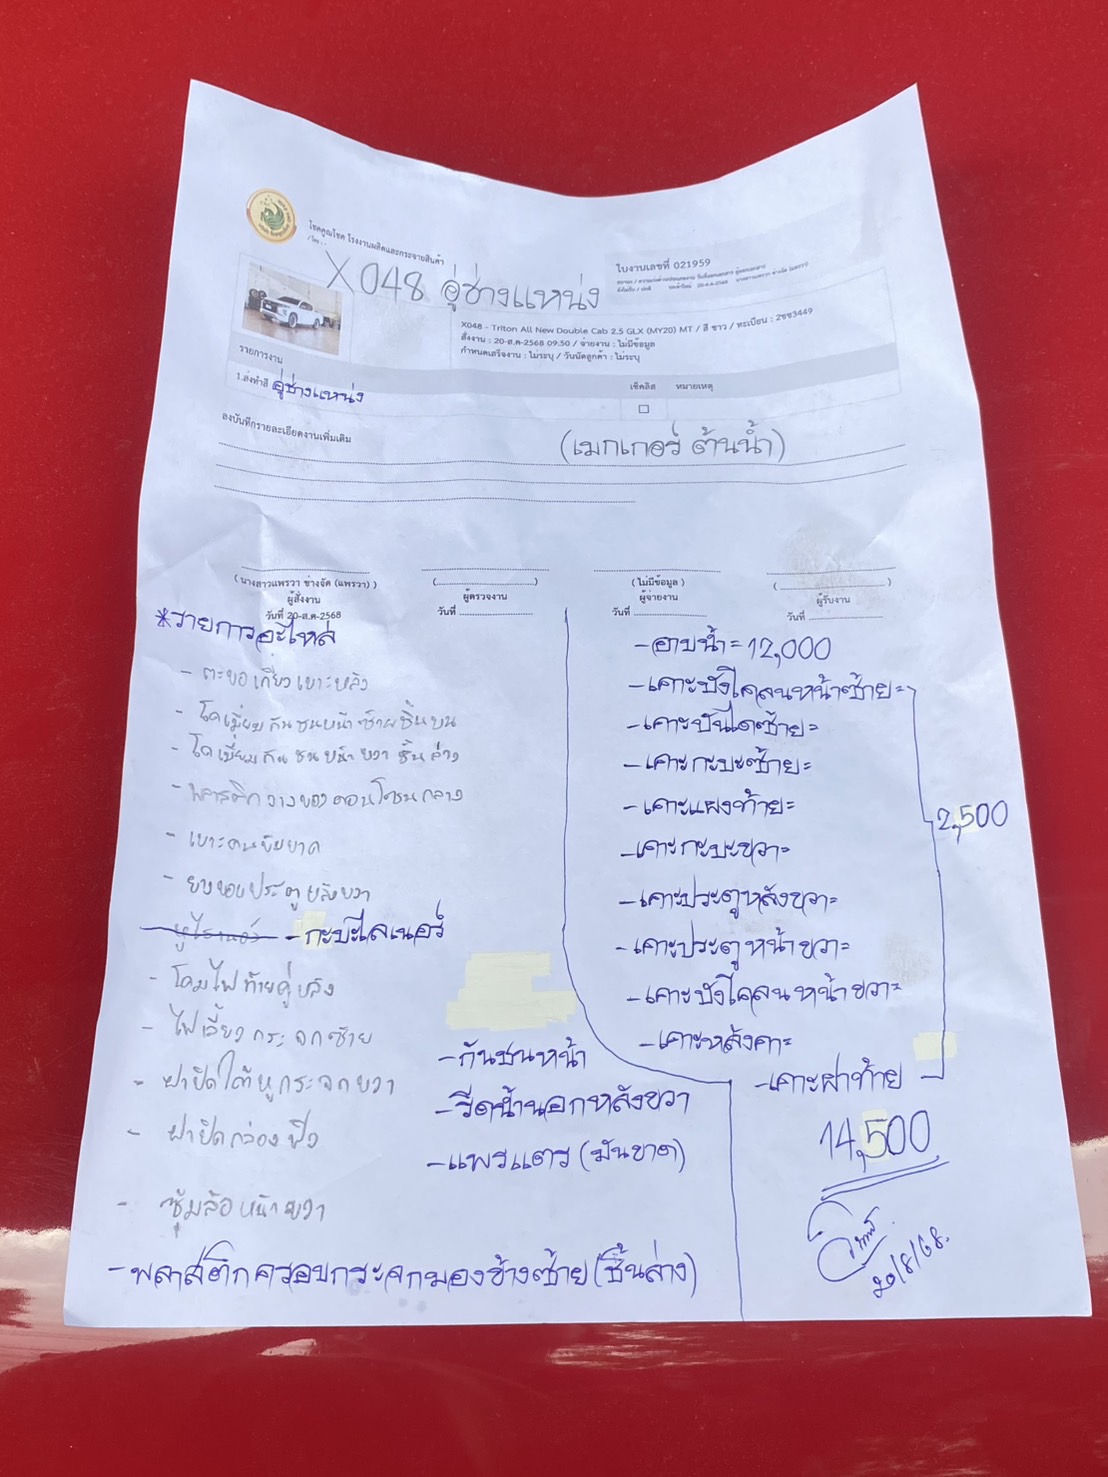 โชคคูณโชค โรงงานผลิตและกระจายสินค้า
X048 อู่ช่างแหน่ง
ใบงานเลขที่ 021959
X048 - Triton All New Double Cab 2.5 GLX (MY20) MT / สี ขาว / ทะเบียน : 2ขข3449
สั่งงาน : 20-ส.ค-2568 09:50 / จ่ายงาน : ไม่มีข้อมูล
กำหนดเสร็จงาน : ไม่ระบุ / วันนัดลูกค้า : ไม่ระบุ
รายการงาน
เช็คลิส หมายเหตุ
1.ส่งทำสี อู่ช่างแหน่ง
ลงบันทึกรายละเอียดงานเพิ่มเติม
(เมกเกอร์ ต้นน้ำ)
( นางสาวแพรวา ช่างจัด (แพรวา) )
ผู้สั่งงาน
วันที่ 20-ส.ค-2568
ผู้ตรวจงาน
วันที่
( ไม่มีข้อมูล )
ผู้จ่ายงาน
วันที่
ผู้รับงาน
วันที่
*รายการอะไหล่
- ตะขอเกี่ยวเบาะหลัง
- โคเมี่ยมกันชนหน้าซ้ายชิ้นบน
- โคเมี่ยมกันชนหน้าขวาชิ้นล่าง
- พลาสติกวางของคอนโซนกลาง
- เบาะคนขับขาด
- ยางขอบประตูหลังขวา
- กะบะไลเนอร์
- โคมไฟท้ายคู่หลัง
- ไฟเลี้ยวกระจกซ้าย
- ฝาปิดใต้หูกระจกขวา
- ฝาปิดกล่องฟิว
- ซุ้มล้อหน้าขวา
- พลาสติกครอบกระจกมองข้างซ้าย (ชิ้นล่าง)
- กันชนหน้า
- รีดน้ำนอกหลังขวา
- แพรแตร (มันขาด)
- อาบน้ำ = 12,000
- เคาะบังโคลนหน้าซ้าย=
- เคาะบันไดซ้าย=
- เคาะกะบะซ้าย=
- เคาะแผงท้าย=
- เคาะกะบะขวา=
- เคาะประตูหลังขวา=
- เคาะประตูหน้าขวา=
- เคาะบังโคลนหน้าขวา=
- เคาะหลังคา=
- เคาะฝาท้าย
2,500
14,500
20/8/68.